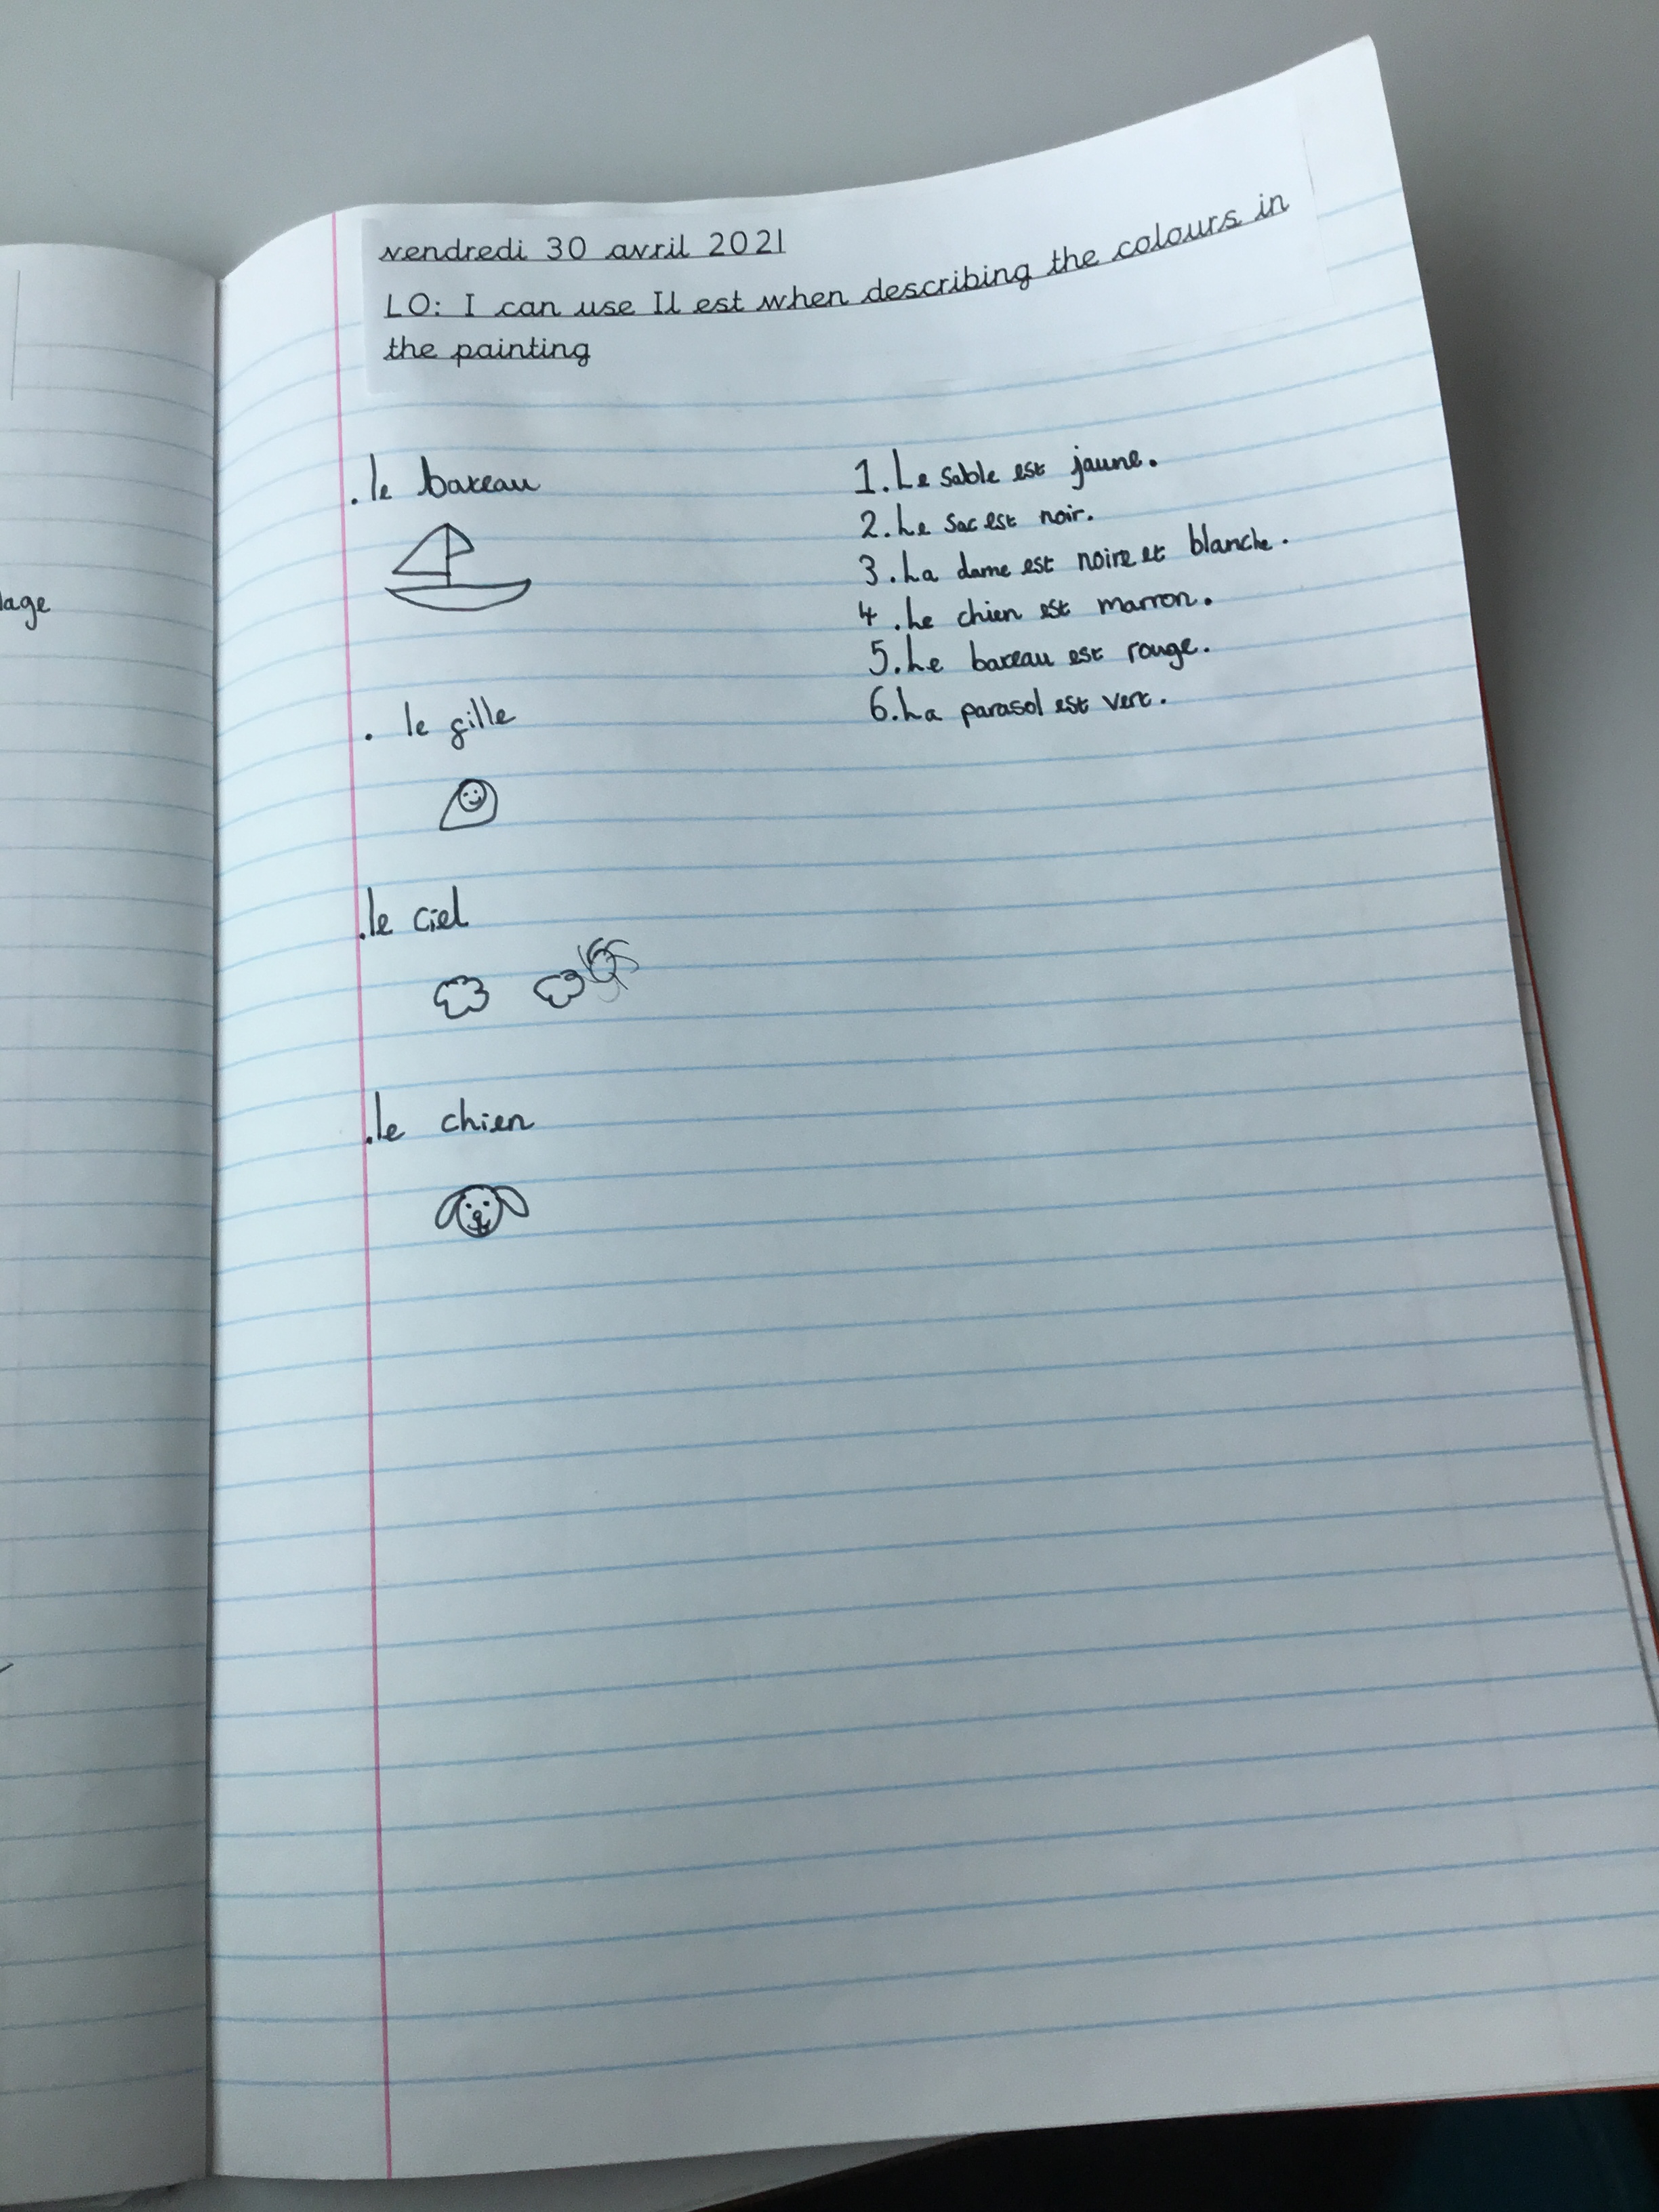 lage
vendredi 30 avril 2021
LO: I can use Il est when describing the colours in
the painting
. le bateau
. le fille
. le ciel
. le chien
1. Le sable est jaune.
2. Le sac est noir.
3. La dame est noire et blanche.
4. Le chien est marron.
5. Le bateau est rouge.
6. La parasol est vert.